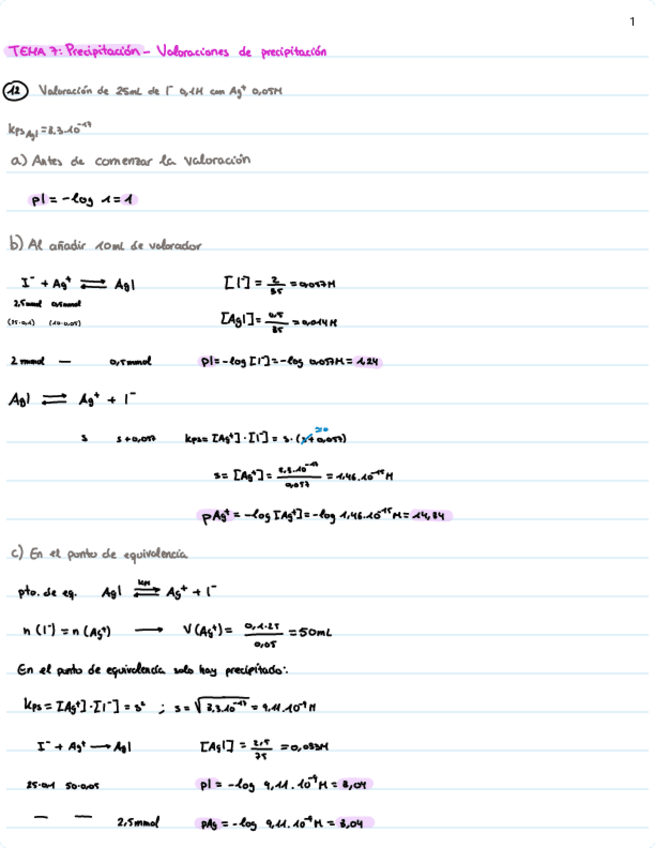 1
TEMA 7: Precipitación - Valoraciones de precipitación
12 Valoración de 25mL de I⁻ 0,1M con Ag⁺ 0,05M
kps AgI = 8,3·10⁻¹⁷
a) Antes de comenzar la valoración
pI = -log 1 = 1
b) Al añadir 10mL de valorador
I⁻ + Ag⁺ ⇄ AgI [I⁻] = 2/35 = 0,057M
2,5mmol 0,5mmol
(25·0,1) (10·0,05) [AgI] = 0,5/35 = 0,014M
2 mmol — 0,5mmol pI = -log [I⁻] = -log 0,057M = 1,24
AgI ⇄ Ag⁺ + I⁻
s s+0,057 kps = [Ag⁺]·[I⁻] = s·(s+0,057)
s = [Ag⁺] = 8,3·10⁻¹⁷/0,057 = 1,46·10⁻¹⁵M
pAg⁺ = -log [Ag⁺] = -log 1,46·10⁻¹⁵M = 14,84
c) En el punto de equivalencia
pto. de eq. AgI ⇄ Ag⁺ + I⁻
n (I⁻) = n (Ag⁺) → V(Ag⁺) = 0,1·25/0,05 = 50mL
En el punto de equivalencia solo hay precipitado:
kps = [Ag⁺]·[I⁻] = s² ; s = √8,3·10⁻¹⁷ = 9,11·10⁻⁹M
I⁻ + Ag⁺ → AgI [AgI] = 2,5/75 = 0,033M
25·0,1 50·0,05 pI = -log 9,11·10⁻⁹M = 8,04
— — 2,5mmol pAg = -log 9,11·10⁻⁹M = 8,04